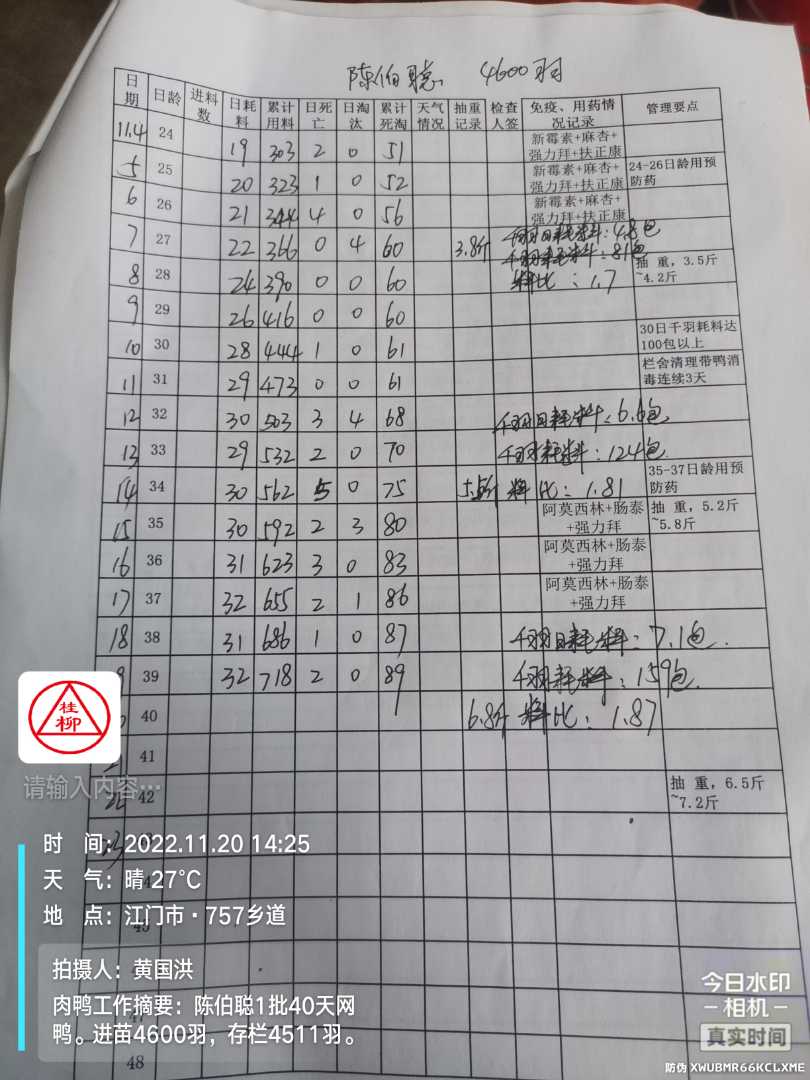 陈伯聪 4600羽
日期 日龄 进料数 日耗料 累计用料 日死亡 日淘汰 累计死淘 天气情况 抽重记录 检查人签 免疫、用药情况记录 管理要点
11.4 24 19 303 2 0 51 新霉素+麻杏+强力拜+扶正康
5 25 20 323 1 0 52 新霉素+麻杏+强力拜+扶正康 24-26日龄用预防药
6 26 21 344 4 0 56 新霉素+麻杏+强力拜+扶正康
7 27 22 366 0 4 60 3.8斤 千羽日耗料:4.8包
千羽耗料:81包
8 28 24 390 0 0 60 料比:1.7 抽重,3.5斤~4.2斤
9 29 26 416 0 0 60
10 30 28 444 1 0 61 30日千羽耗料达100包以上
11 31 29 473 0 0 61 栏舍清理带鸭消毒连续3天
12 32 30 503 3 4 68 千羽日耗料:6.6包
13 33 29 532 2 0 70 千羽耗料:124包
14 34 30 562 5 0 75 5.5斤 料比:1.81 35-37日龄用预防药
15 35 30 592 2 3 80 阿莫西林+肠泰+强力拜 抽重,5.2斤~5.8斤
16 36 31 623 3 0 83 阿莫西林+肠泰+强力拜
17 37 32 655 2 1 86 阿莫西林+肠泰+强力拜
18 38 31 686 1 0 87 千羽日耗料:7.1包.
9 39 32 718 2 0 89 千羽耗料:159包.
40 6.8斤 料比:1.87
41
42 抽重,6.5斤~7.2斤
48
桂柳
请输入内容…
时 间:2022.11.20 14:25
天 气:晴 27℃
地 点:江门市·757乡道
拍摄人:黄国洪
肉鸭工作摘要:陈伯聪1批40天网
鸭。进苗4600羽,存栏4511羽。
今日水印
-相机-
真实时间
防伪 XWUBMR66KCLXME